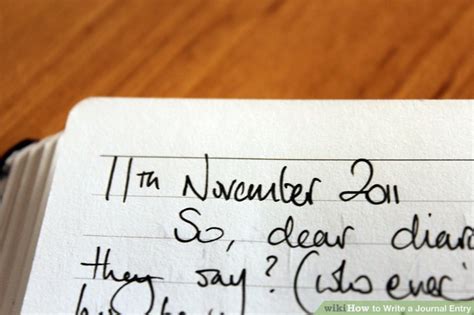 11th November 2011
So, dear diar
they say? (who ever
wikiHow to Write a Journal Entry